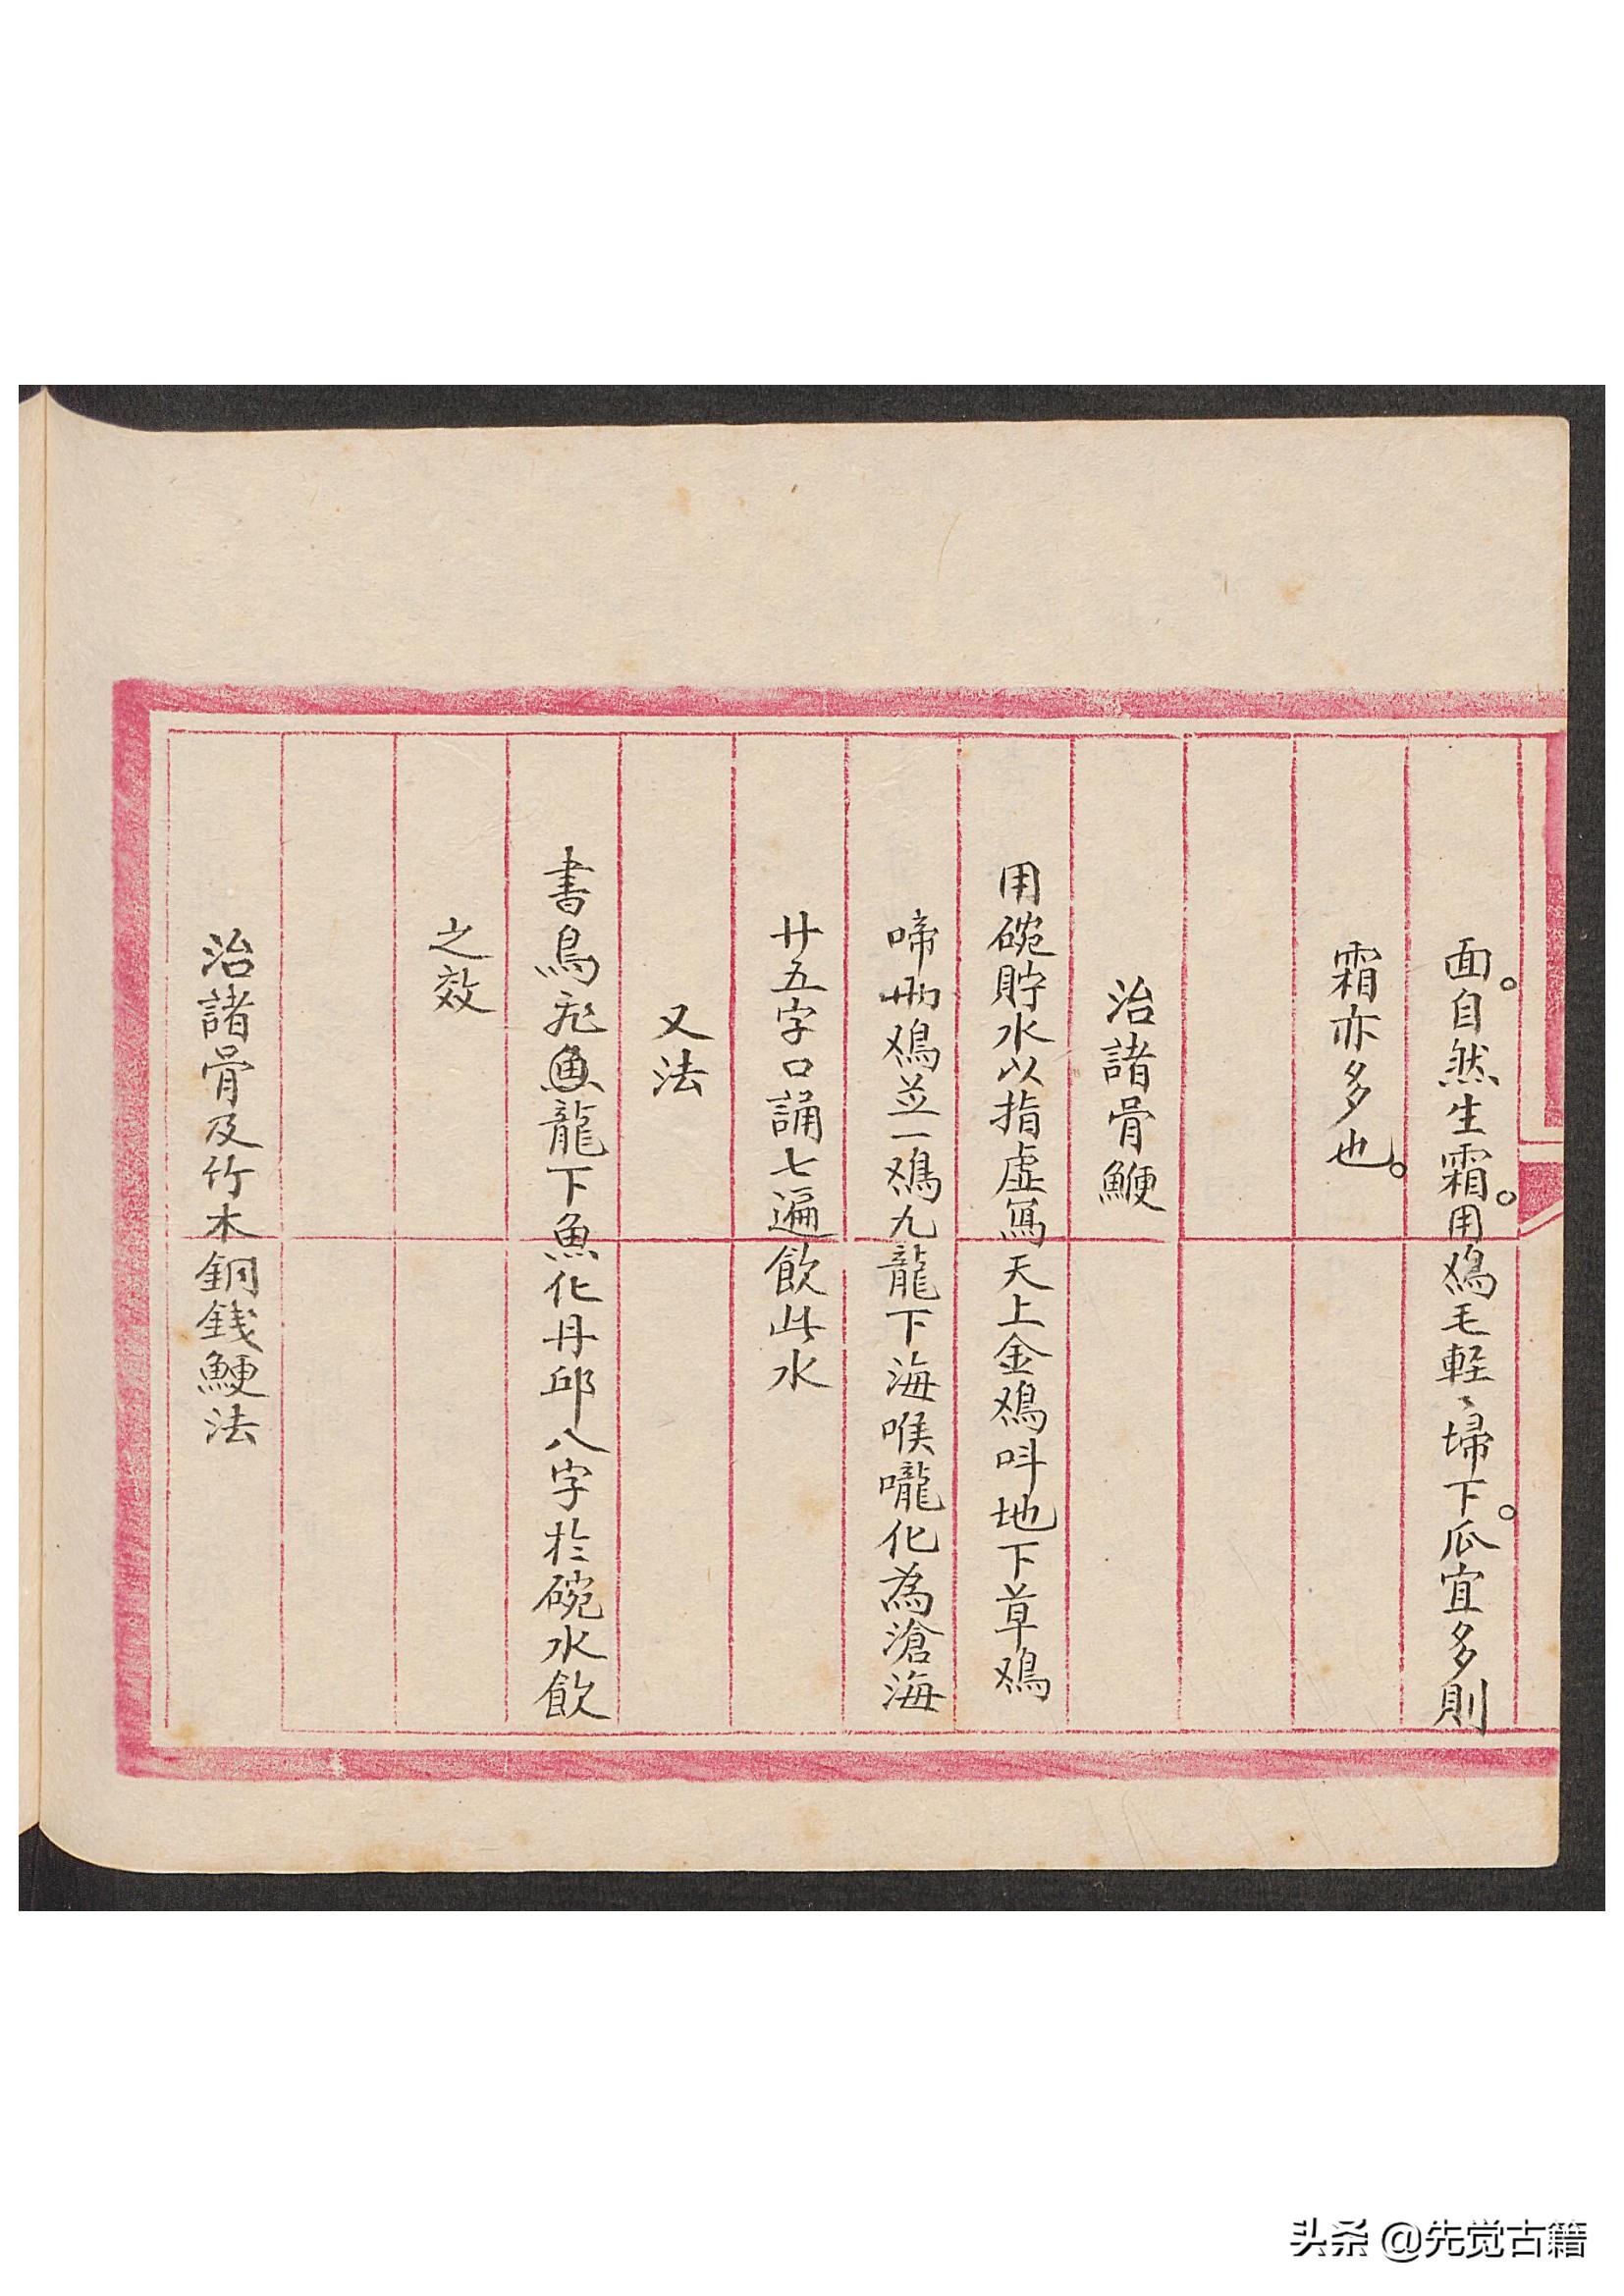 面。自然生霜。用鳮毛軽〻埽下。瓜宜多則
霜亦多也。
治諸骨鯁
用碗貯水以指虛寫天上金鳮呌地下草鳮
啼兩鳮並一鳮九龍下海喉嚨化為滄海
廿五字口誦七遍飲此水
又法
書鳥飛魚龍下魚化丹邱八字於碗水飲
之效
治諸骨及竹木銅錢鯁法
头条 @先觉古籍